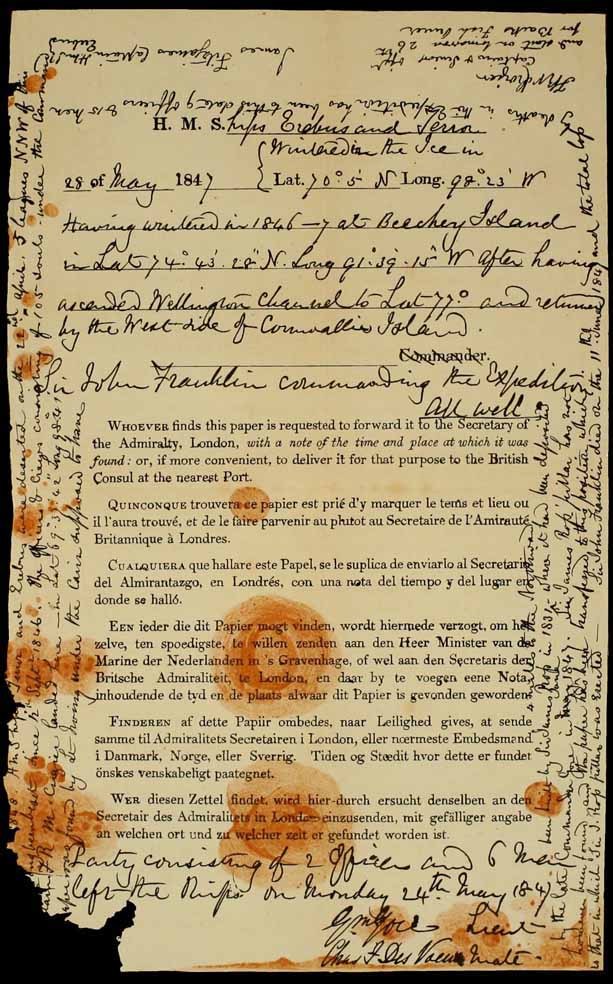 H. M. S.hips Erebus and Terror
Wintered in the Ice in
28 of May 1847 { Lat. 70° 5' N Long. 98° 23' W
Having wintered in 1846–7 at Beechey Island
in Lat 74° 43' 28" N. Long 91° 39' 15" W After having
ascended Wellington Channel to Lat 77° and returned
by the West side of Cornwallis Island.
Commander.
Sir John Franklin commanding the Expedition
All well
WHOEVER finds this paper is requested to forward it to the Secretary of
the Admiralty, London, with a note of the time and place at which it was
found: or, if more convenient, to deliver it for that purpose to the British
Consul at the nearest Port.
QUINCONQUE trouvera ce papier est prié d'y marquer le tems et lieu ou
il l'aura trouvé, et de le faire parvenir au plutot au Secretaire de l'Amirauté
Britannique à Londres.
CUALQUIERA que hallare este Papel, se le suplica de enviarlo al Secretario
del Almirantazgo, en Londrés, con una nota del tiempo y del lugar en
donde se halló.
EEN ieder die dit Papier mogt vinden, wordt hiermede verzogt, om het
zelve, ten spoedigste, te willen zenden aan den Heer Minister van de
Marine der Nederlanden in 's Gravenhage, of wel aan den Secretaris der
Britsche Admiraliteit, te London, en daar by te voegen eene Nota,
inhoudende de tyd en de plaats alwaar dit Papier is gevonden geworden.
FINDEREN af dette Papiir ombedes, naar Leilighed gives, at sende
samme til Admiralitets Secretairen i London, eller nœrmeste Embedsmand
i Danmark, Norge, eller Sverrig. Tiden og Stœdit hvor dette er fundet
önskes venskabeligt paategnet.
WER diesen Zettel findet, wird hier-durch ersucht denselben an den
Secretair des Admiralitets in London einzusenden, mit gefälliger angabe
an welchen ort und zu welcher zeit er gefundet worden ist.
Party consisting of 2 Officers and 6 Men
left the Ships on Monday 24th May 1847
Gm Gore Lieut
Chas F Des Voeux Mate
848 H.M. Ships Terror and Erebus were deserted on the 22nd April 5 leagues NNW of this
been beset since 12th Septr 1846. The Officers & Crews consisting of 105 souls under the Command
F.R.M. Crozier landed here – in Lat 69° 37' 42" Long 98° 41'
paper was found by Lt Irving under the Cairn supposed to have
been built by Sir James Ross in 1831 4 miles to the Northward where it had been deposited
by the late Commander Gore in June 1847. Sir James Ross' pillar has not
however been found and the paper has been transferred to this position which
is that in which Sir J. Ross' pillar was erected – Sir John Franklin died on the 11th June 1847 and the total loss
by deaths in the Expedition has been to this date 9 officers & 15 men
James Fitzjames Captain HMS Erebus
F R M Crozier
Captain & Senior Offr
and start on tomorrow 26th
for Backs Fish River